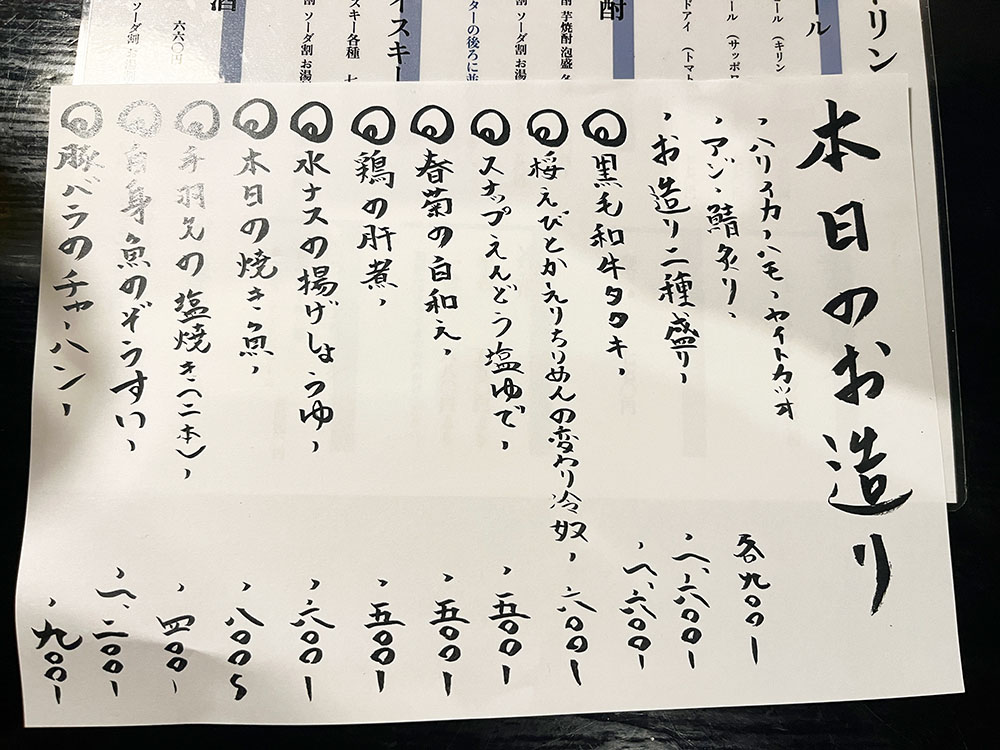 キリン
ール
（キリン
ール（サッポロ
ドアイ（トマト
酎
酎 芋焼酎 泡盛
ソーダ割 お湯
ターの後ろに並
イスキー
スキー各種 七
割 ソーダ割 お湯
酒
六六〇円
ソーダ割 お湯割
本日のお造り
・ハリイカ・ハモ・ヤイトカツオ
・アジ・鯖炙り、各九〇〇ー
・お造り二種盛り、一、六〇〇ー
◎黒毛和牛タタキ、一、六〇〇ー
◎桜えびとかえりちりめんの変わり冷奴、六〇〇ー
◎スナップえんどう塩ゆで、五〇〇ー
◎春菊の白和え、五〇〇ー
◎鶏の肝煮、五〇〇ー
◎水ナスの揚げしょうゆ、六〇〇ー
◎本日の焼き魚、八〇〇〜
◎手羽先の塩焼き（二本）、四〇〇ー
◎白身魚のぞうすい、一、二〇〇ー
◎豚バラのチャーハン、九〇〇ー